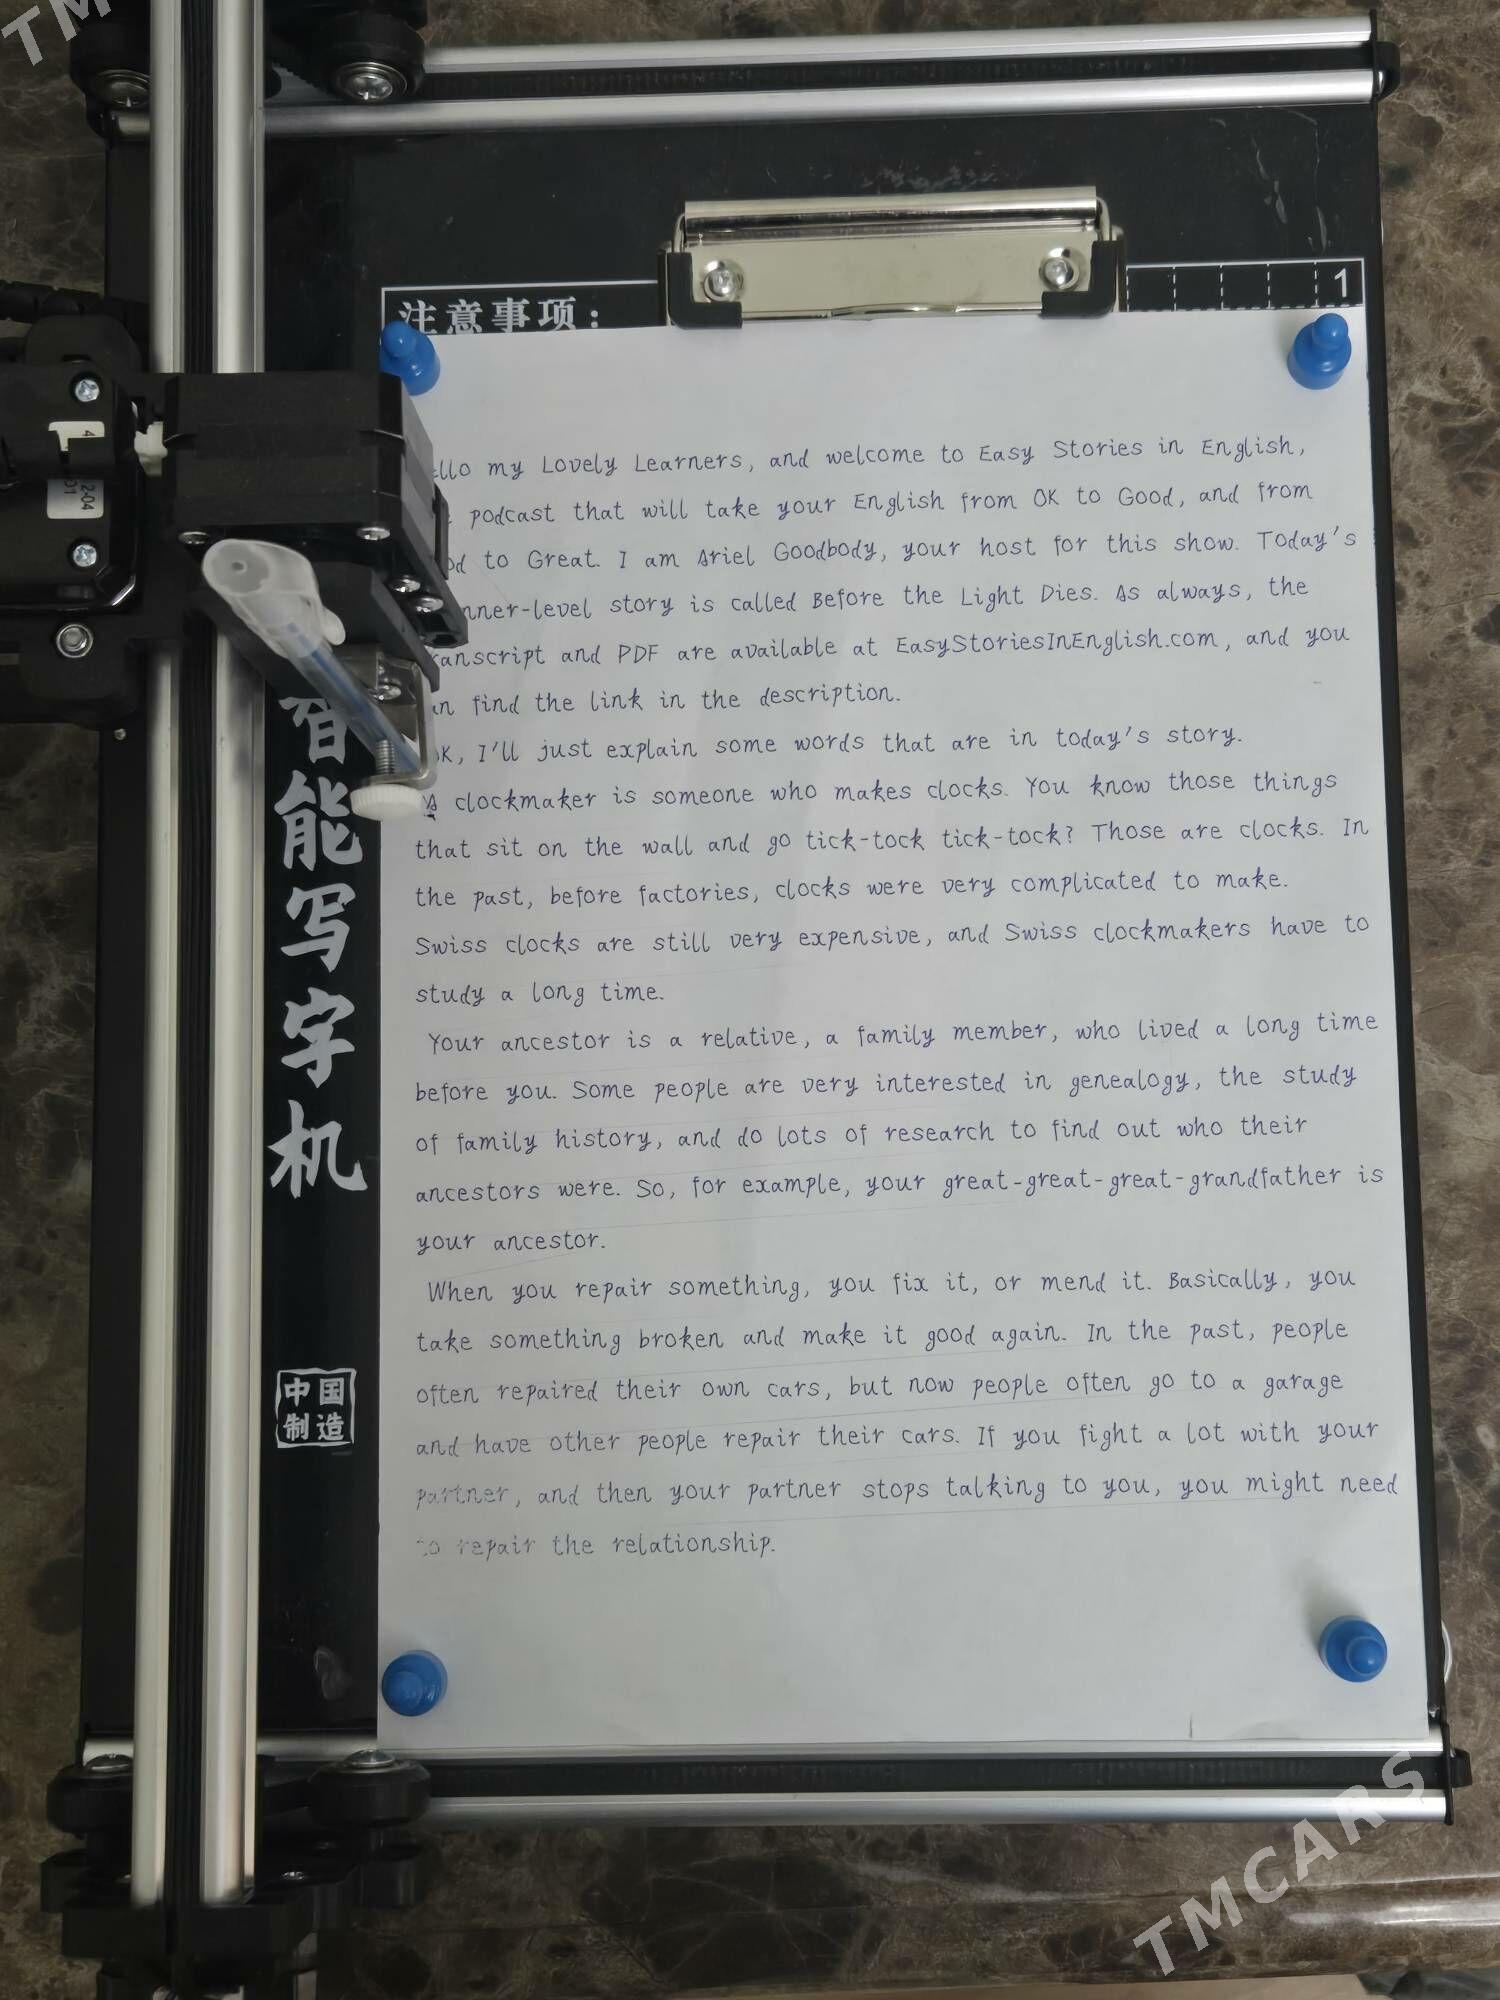 TMCARS
注意事项：
1
智能写字机
中国
制造
my Lovely Learners, and welcome to Easy Stories in English,
podcast that will take your English from OK to Good, and from
to Great. I am Ariel Goodbody, your host for this show. Today's
story is called Before the Light Dies. As always, the
and PDF are available at EasyStoriesInEnglish.com, and you
find the link in the description.
I'll just explain some words that are in today's story.
A clockmaker is someone who makes clocks. You know those things
that sit on the wall and go tick-tock tick-tock? Those are clocks. In
the past, before factories, clocks were very complicated to make.
Swiss clocks are still very expensive, and Swiss clockmakers have to
study a long time.
Your ancestor is a relative, a family member, who lived a long time
before you. Some people are very interested in genealogy, the study
of family history, and do lots of research to find out who their
ancestors were. So, for example, your great-great-great-grandfather is
your ancestor.
When you repair something, you fix it, or mend it. Basically, you
take something broken and make it good again. In the past, people
often repaired their own cars, but now people often go to a garage
and have other people repair their cars. If you fight a lot with your
partner, and then your partner stops talking to you, you might need
to repair the relationship.